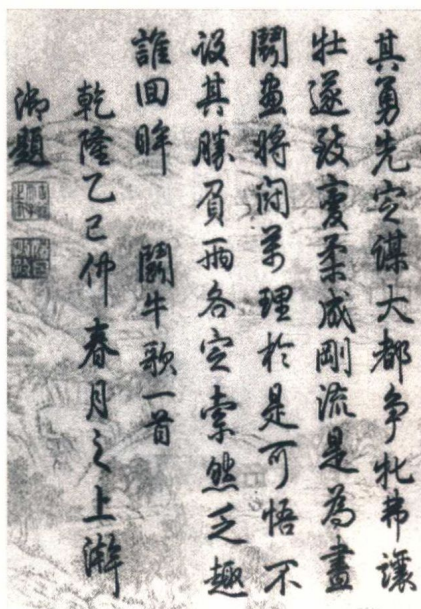 其勇先定謀大都爭牝弗讓
牡遂致變柔成剛流是為畫
鬭畫將閱萬理於是可悟不
設其勝負兩各定索然乏趣
誰回眸 鬭牛歌一首
乾隆乙巳仲春月之上澣
御題